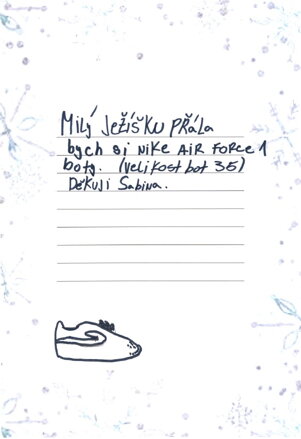 Milý Ježíšku přála
bych si NIKE AIR FORCE 1
boty. (velikost bot 35)
Děkuji Sabina.